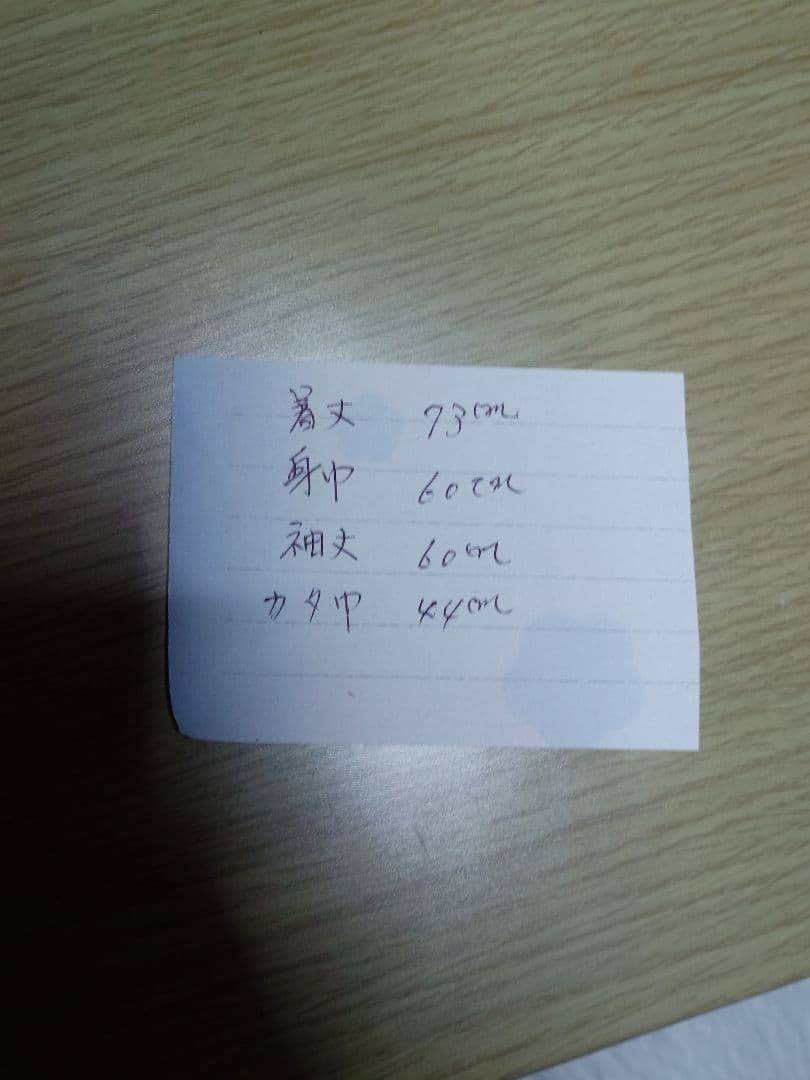 着丈 73cm
身巾 60cm
袖丈 60cm
カタ巾 44cm